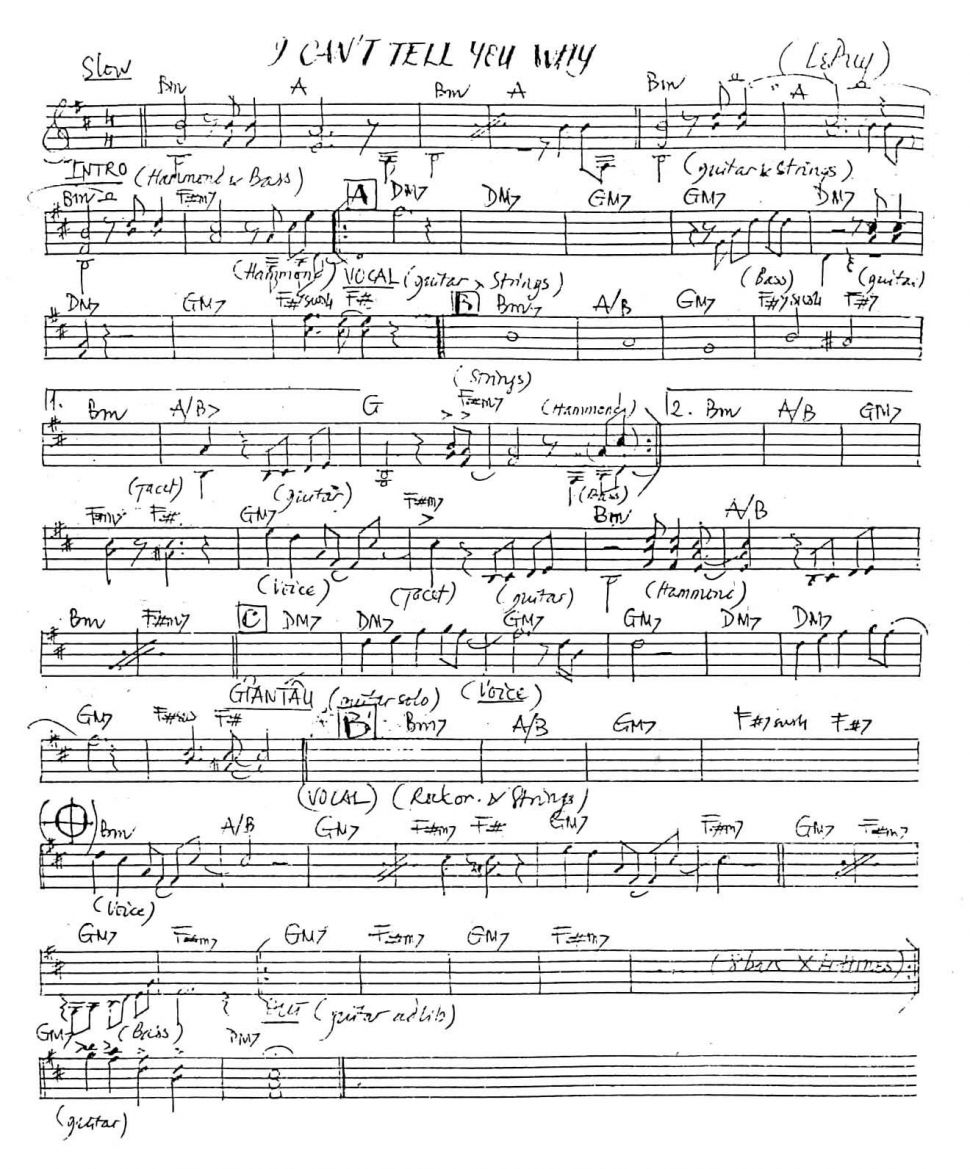 I CAN'T TELL YOU WHY
Slow
Bm A Bm A Bm A
INTRO (Hammond & Bass) (guitar & Strings)
Bm F#m7 A DM7 DM7 GM7 GM7 DM7
(Hammond) VOCAL (guitar & Strings) (Bass) (guitar)
DM7 GM7 F#7sus4 F# B Bm7 A/B GM7 F#7sus4 F#7
(Strings)
1. Bm A/B G F#m7 (Hammond) 2. Bm A/B GM7
(Tacet) (guitar) (Bass)
F# GM7 F#m7 Bm A/B
(Voice) (Tacet) (guitar) (Hammond)
Bm F#m7 C DM7 DM7 GM7 GM7 DM7 DM7
(guitar solo) (Voice)
GM7 F#sus F# B Bm7 A/B GM7 F#7sus4 F#7
(VOCAL) & Strings)
Bm A/B GM7 F#m7 F# GM7 F#m7 GM7 F#m7
(Voice)
GM7 F#m7 GM7 F#m7 GM7 F#m7
(8 bars X
(guitar adlib)
GM7 (Bass) DM7
(guitar)